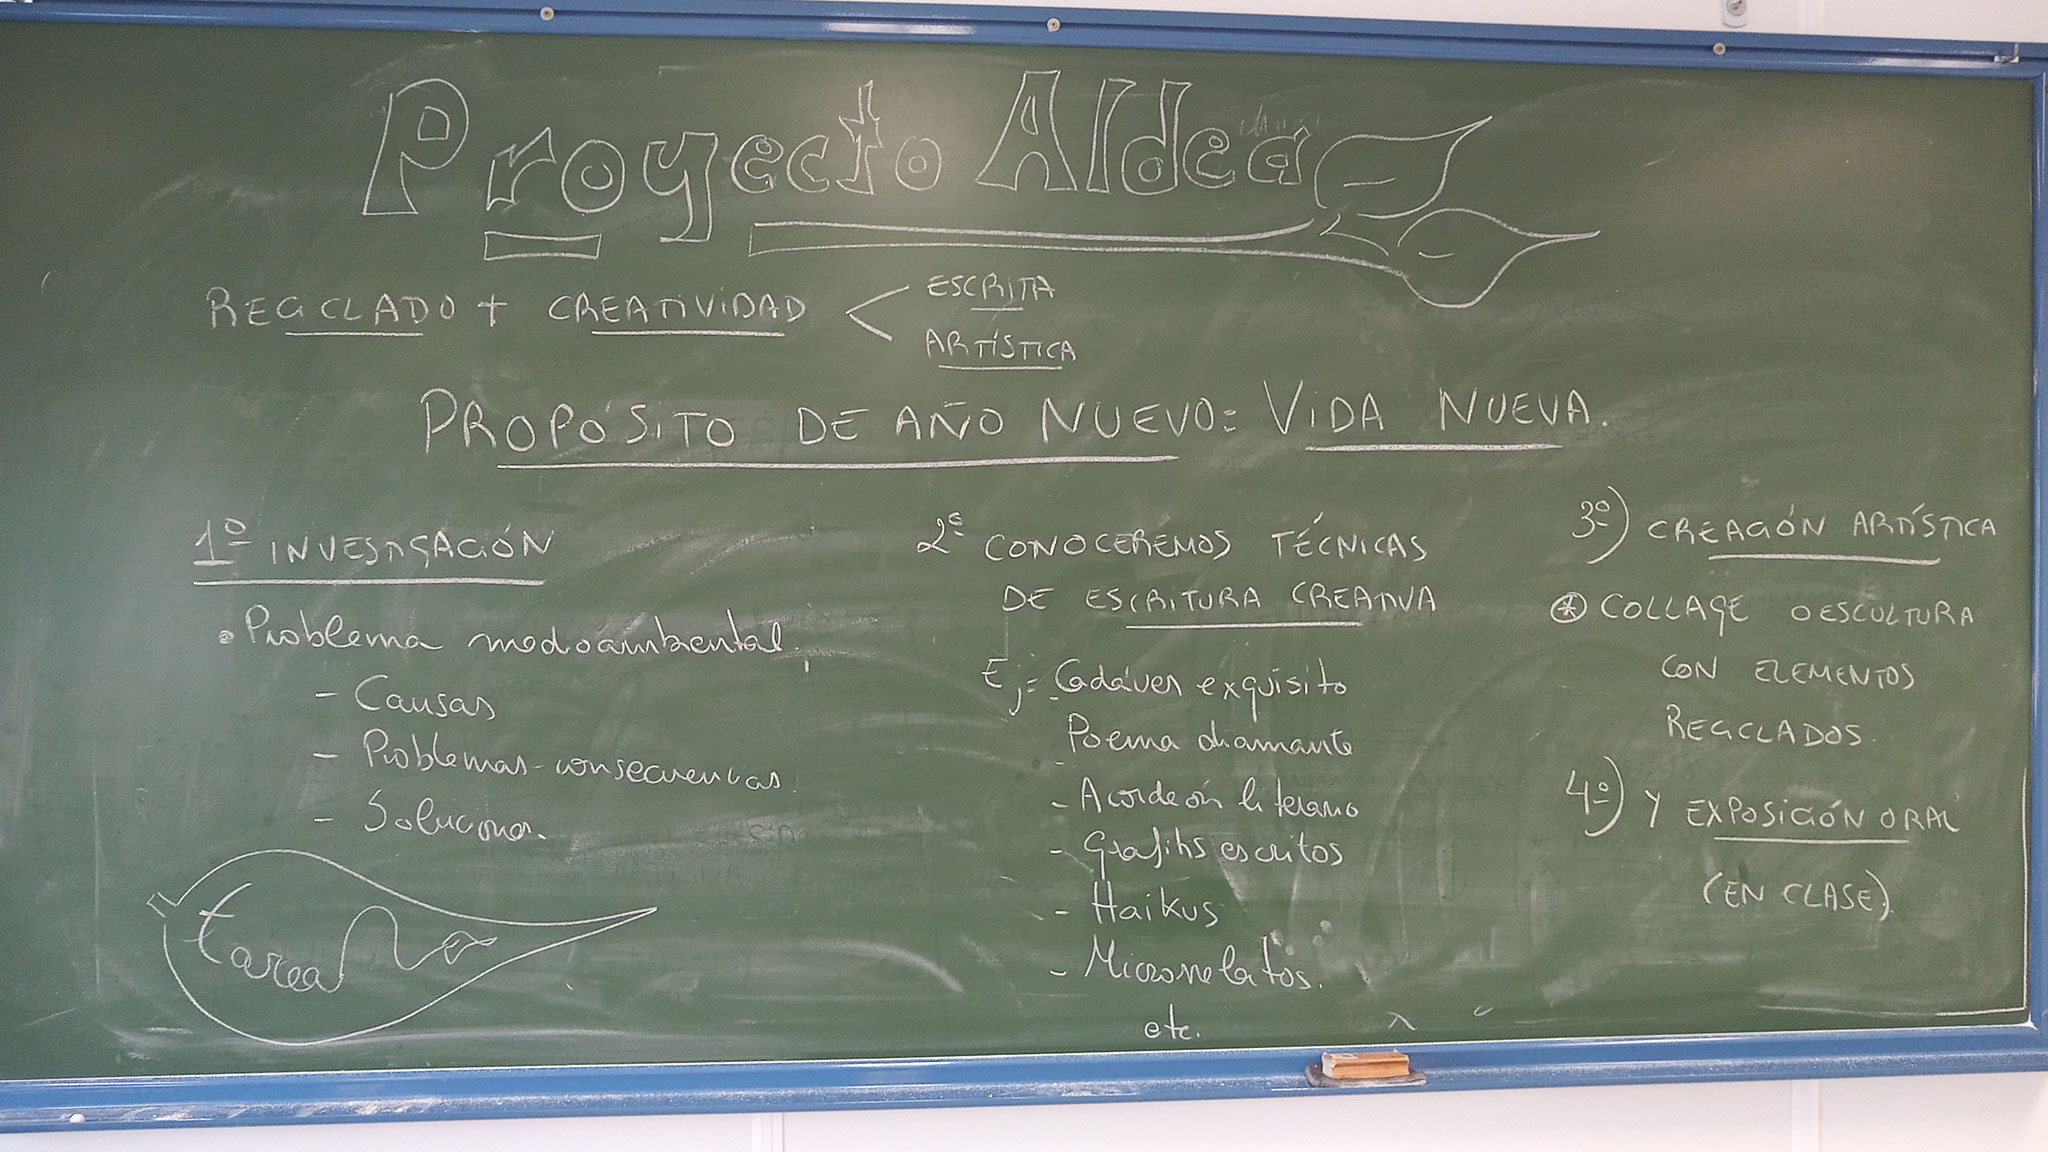 Proyecto Aldea
RECICLADO + CREATIVIDAD
ESCRITA
ARTÍSTICA
PROPÓSITO DE AÑO NUEVO: VIDA NUEVA.
1º INVESTIGACIÓN
• Problema medioambiental.
- Causas
- Problemas-consecuencias.
- Soluciones.
tarea
2º CONOCEREMOS TÉCNICAS
DE ESCRITURA CREATIVA
Ej: Cadáver exquisito
- Poema diamante
- Acordeón literario
- Grafitis escritos
- Haikus
- Microrrelatos.
etc.
3º) CREACIÓN ARTÍSTICA
* COLLAGE O ESCULTURA
CON ELEMENTOS
RECICLADOS.
4º) Y EXPOSICIÓN ORAL
(EN CLASE).